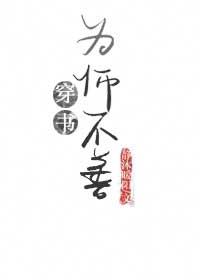 为师不善
穿书